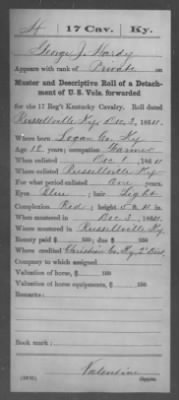 H | 17 Cav. | Ky.
George J. Hardy
Appears with rank of Private on
Muster and Descriptive Roll of a Detachment
of U. S. Vols. forwarded
for the 17 Reg't Kentucky Cavalry. Roll dated
Russellville Ky. Dec 3, 1864.
Where born Logan Co. Ky.
Age 18 years; occupation Farmer
When enlisted Dec 1, 1864.
Where enlisted Russellville Ky.
For what period enlisted one years.
Eyes Blue; hair Light
Complexion Red; height 5 ft. in.
When mustered in Dec 3, 1864.
Where mustered in Russellville Ky.
Bounty paid $ 100; due $ 100
Where credited Christian Co. Ky. 2' Dist.
Company to which assigned
Valuation of horse, $ 100
Valuation of horse equipments, $ 100
Remarks:
Book mark:
Valentine
Copyist.